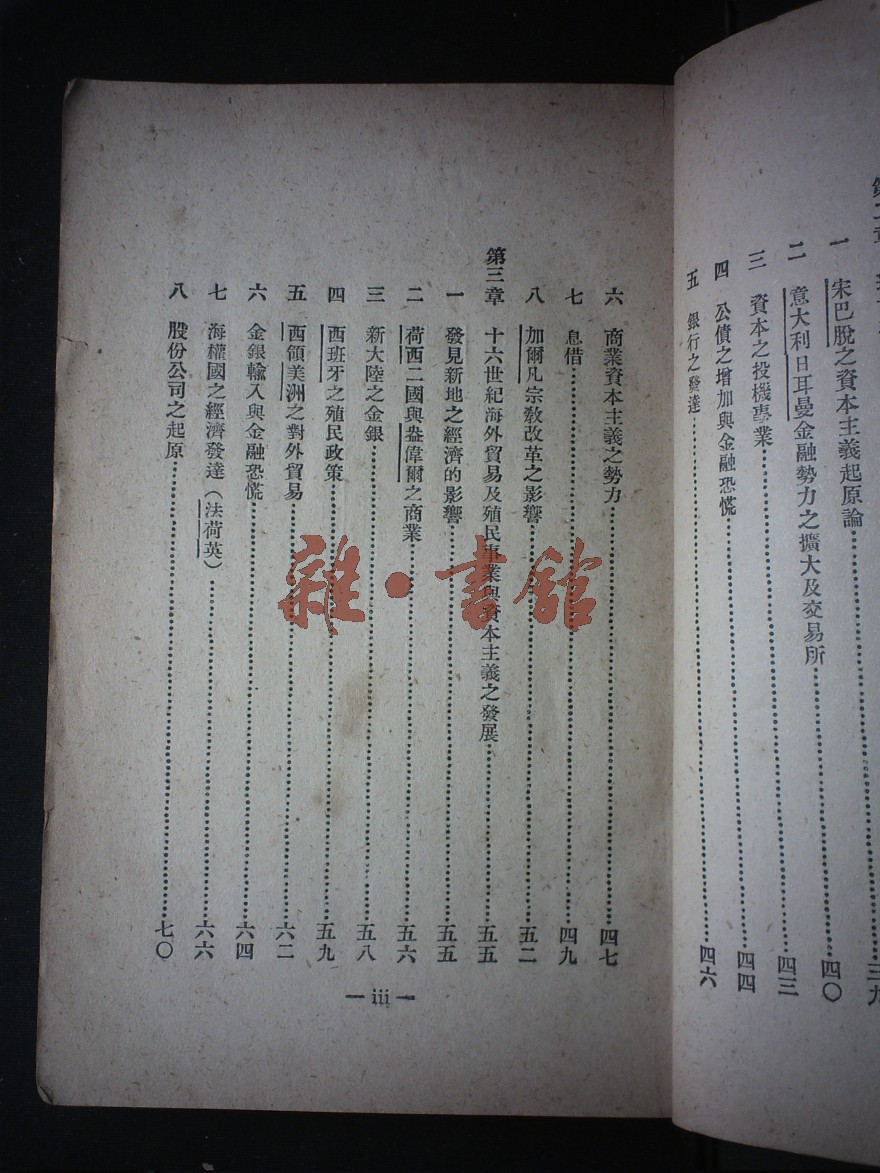 一　宋巴脫之資本主義起原論……四〇
二　意大利日耳曼金融勢力之擴大及交易所……四三
三　資本之投機事業……四四
四　公債之增加與金融恐慌……
五　銀行之發達……四六
六　商業資本主義之勢力……四七
七　息借……四九
八　加爾凡宗教改革之影響……五二
第三章　十六世紀海外貿易及殖民事業與資本主義之發展……五五
一　發見新地之經濟的影響……五五
二　荷西二國與盎偉爾之商業……五六
三　新大陸之金銀……五八
四　西班牙之殖民政策……五九
五　西領美洲之對外貿易……六二
六　金銀輸入與金融恐慌……六四
七　海權國之經濟發達（法荷英）……六六
八　股份公司之起原……七〇
— iii —
雜·書館